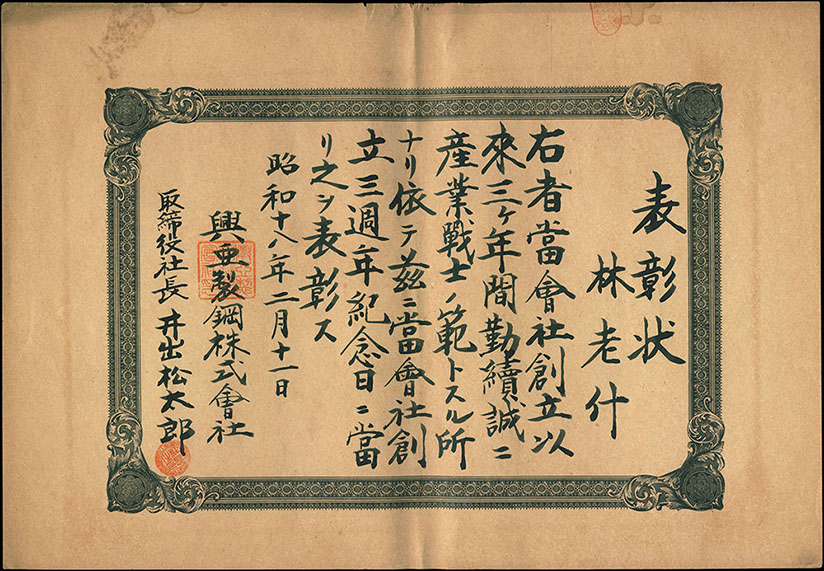 表彰状
林老什
右者當會社創立以
來三ケ年間勤續誠ニ
産業戰士ノ範トスル所
ナリ依テ茲ニ當會社創
立三週年紀念日ニ當
リ之ヲ表彰ス
昭和十八年二月十一日
興亜製鋼株式會社
取締役社長 井出松太郎